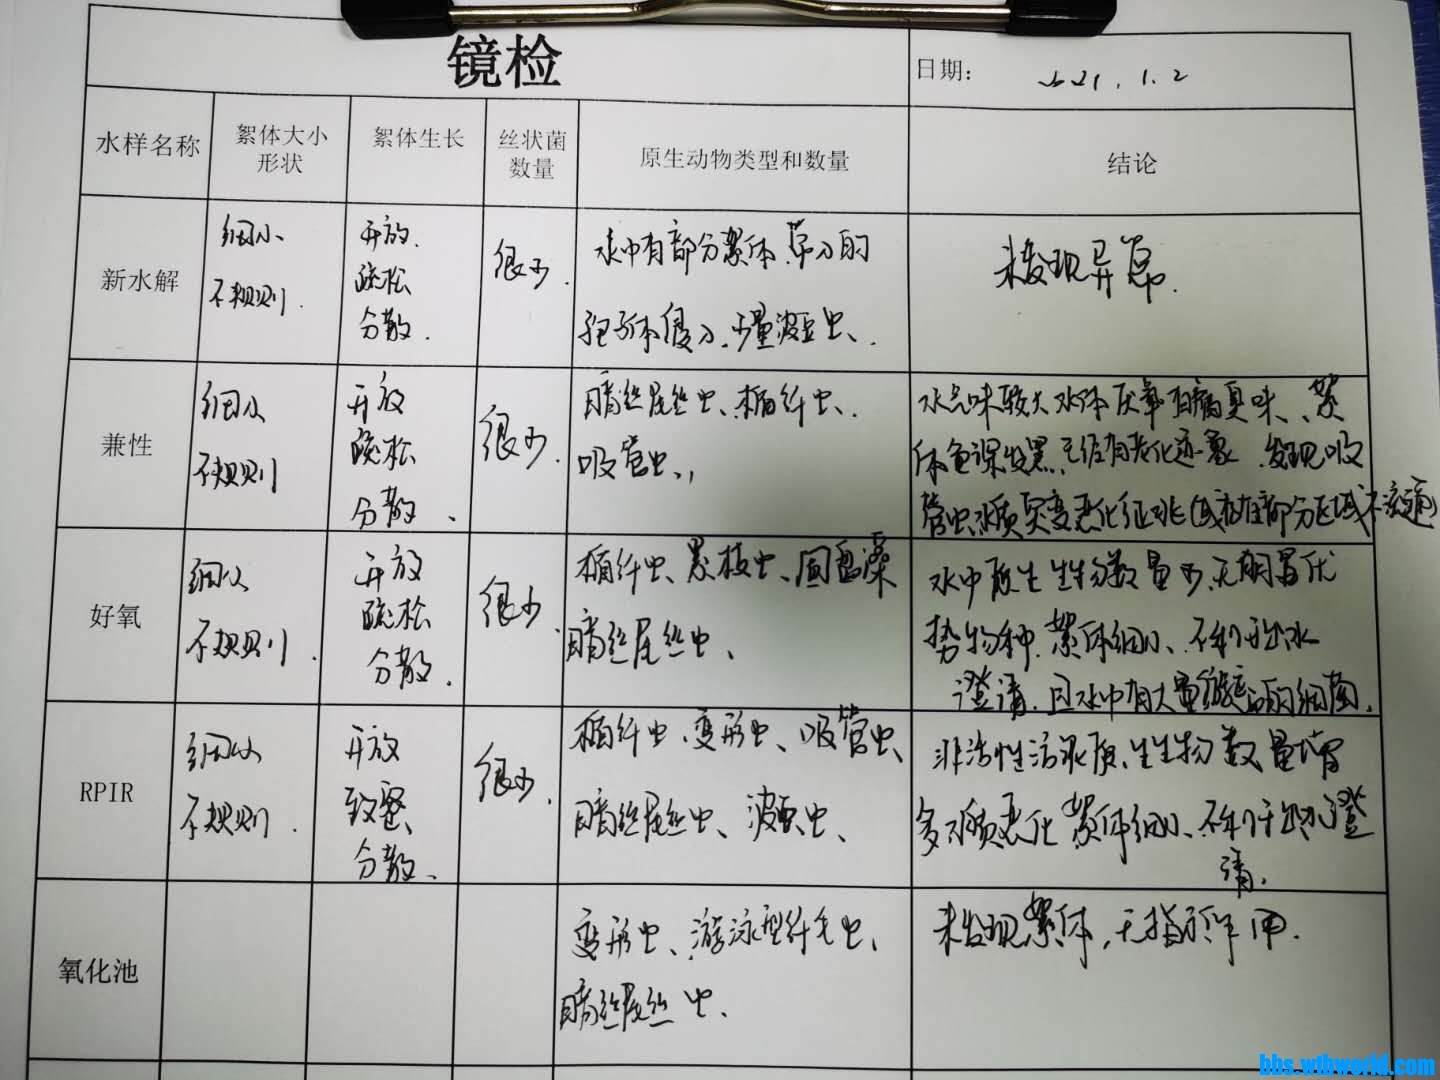 镜检
日期： 2021.1.2
水样名称
絮体大小
形状
絮体生长
丝状菌
数量
原生动物类型和数量
结论
新水解
细小
不规则.
开放.
疏松
分散.
很少.
水中有部分絮体.
孢子体侵入.少量波豆虫、.
未发现异常.
兼性
细小
不规则
开放
疏松
分散、
很少.
暗丝尾丝虫、楯纤虫、
吸管虫、
水气味较大水体厌氧 腐臭味、絮
体色深发黑已经有老化迹象.发现吸
管虫水质突变恶化征兆(或存在部分区域不流通)
好氧
细小
不规则.
开放
疏松
分散.
很少.
楯纤虫、累枝虫、圆盘藻
暗丝尾丝虫、
水中原生生物数量少、无明显优
势物种.絮体细小、不利于出水
澄清.且水中有大量 的细菌.
RPIR
细小
不规则.
开放
致密
分散、
很少.
楯纤虫、变形虫、吸管虫、
暗丝尾丝虫、波豆虫、
非活性污泥原生生物数量增
多水质恶化絮体细小、不利于出水澄
清.
氧化池
变形虫、游泳型纤毛虫、
暗丝尾丝虫、
未发现絮体,无指示作用.
bbs.wtbworld.com